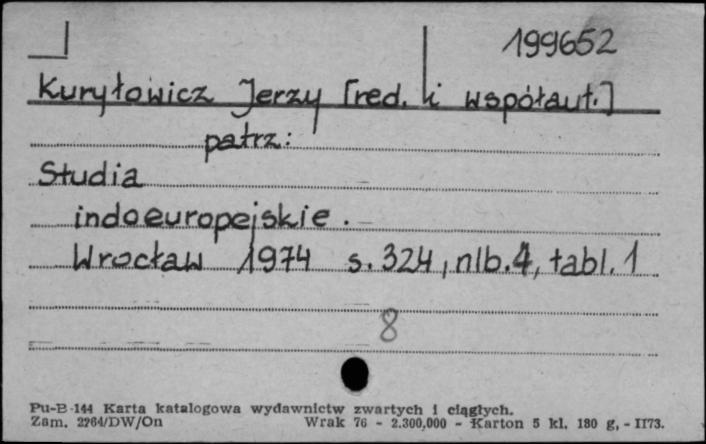 199652
Kuryłowicz Jerzy [red. i współaut.]
patrz:
Studia
indoeuropejskie.
Wrocław 1974 s. 324, nlb. 4, tabl. 1
8
Pu-B-144 Karta katalogowa wydawnictw zwartych i ciągłych.
Zam. 2964/DW/On Wrak 76 - 2.300,000 - Karton 5 kl. 180 g, - II73.